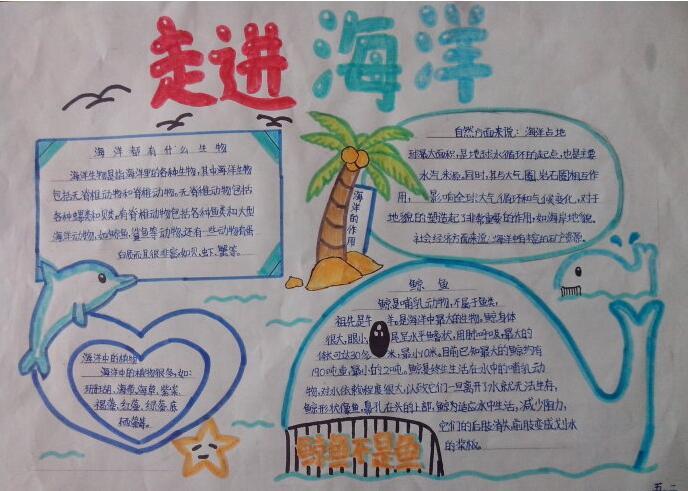 走进海洋
海洋都有什么生物
海洋生物是指海洋里的各种生物,其中海洋生物
包括无脊椎动物和脊椎动物。无脊椎动物包括
各种螺类和贝类。有脊椎动物包括各种鱼类和大型
海洋动物,如鲸鱼,鲨鱼等动物,还有一些动物有蛋
白质而且很丰富如贝、虾、蟹等。
海洋的作用
自然方面来说:海洋占地
球最大面积,是地球水循环的起点,也是主要
水汽来源,同时,其与大气圈岩石圈相互作
用,影响全球大气循环和气候变化,对于
地貌的塑造起了非常重要的作用,如海岸地貌.
社会经济方面来说:海洋有丰富的矿产资源.
海洋中的植物
海洋中的植物很多,如:
海带,海草,紫菜,
褐藻,红藻,绿藻,
鲸鱼
鲸鱼是哺乳动物,不属于鱼类,
祖先是牛羊,是海洋中最大的生物。鲸身体
很大,眼小,尾呈水平鳍状,用肺呼吸,最大的
体长可达30多米,最小10米,目前已知最大的鲸约有
190吨重,最小的2吨,鲸是终生生活在水中的哺乳动
物,对水依赖程度很大,以致它们一旦离开了水就无法生存,
鲸形状像鱼,鼻孔在头的上部,鲸为适应水中生活,减少阻力,
它们的后肢消失,前肢变成划水
的桨板。
鲸鱼不是鱼
五.二